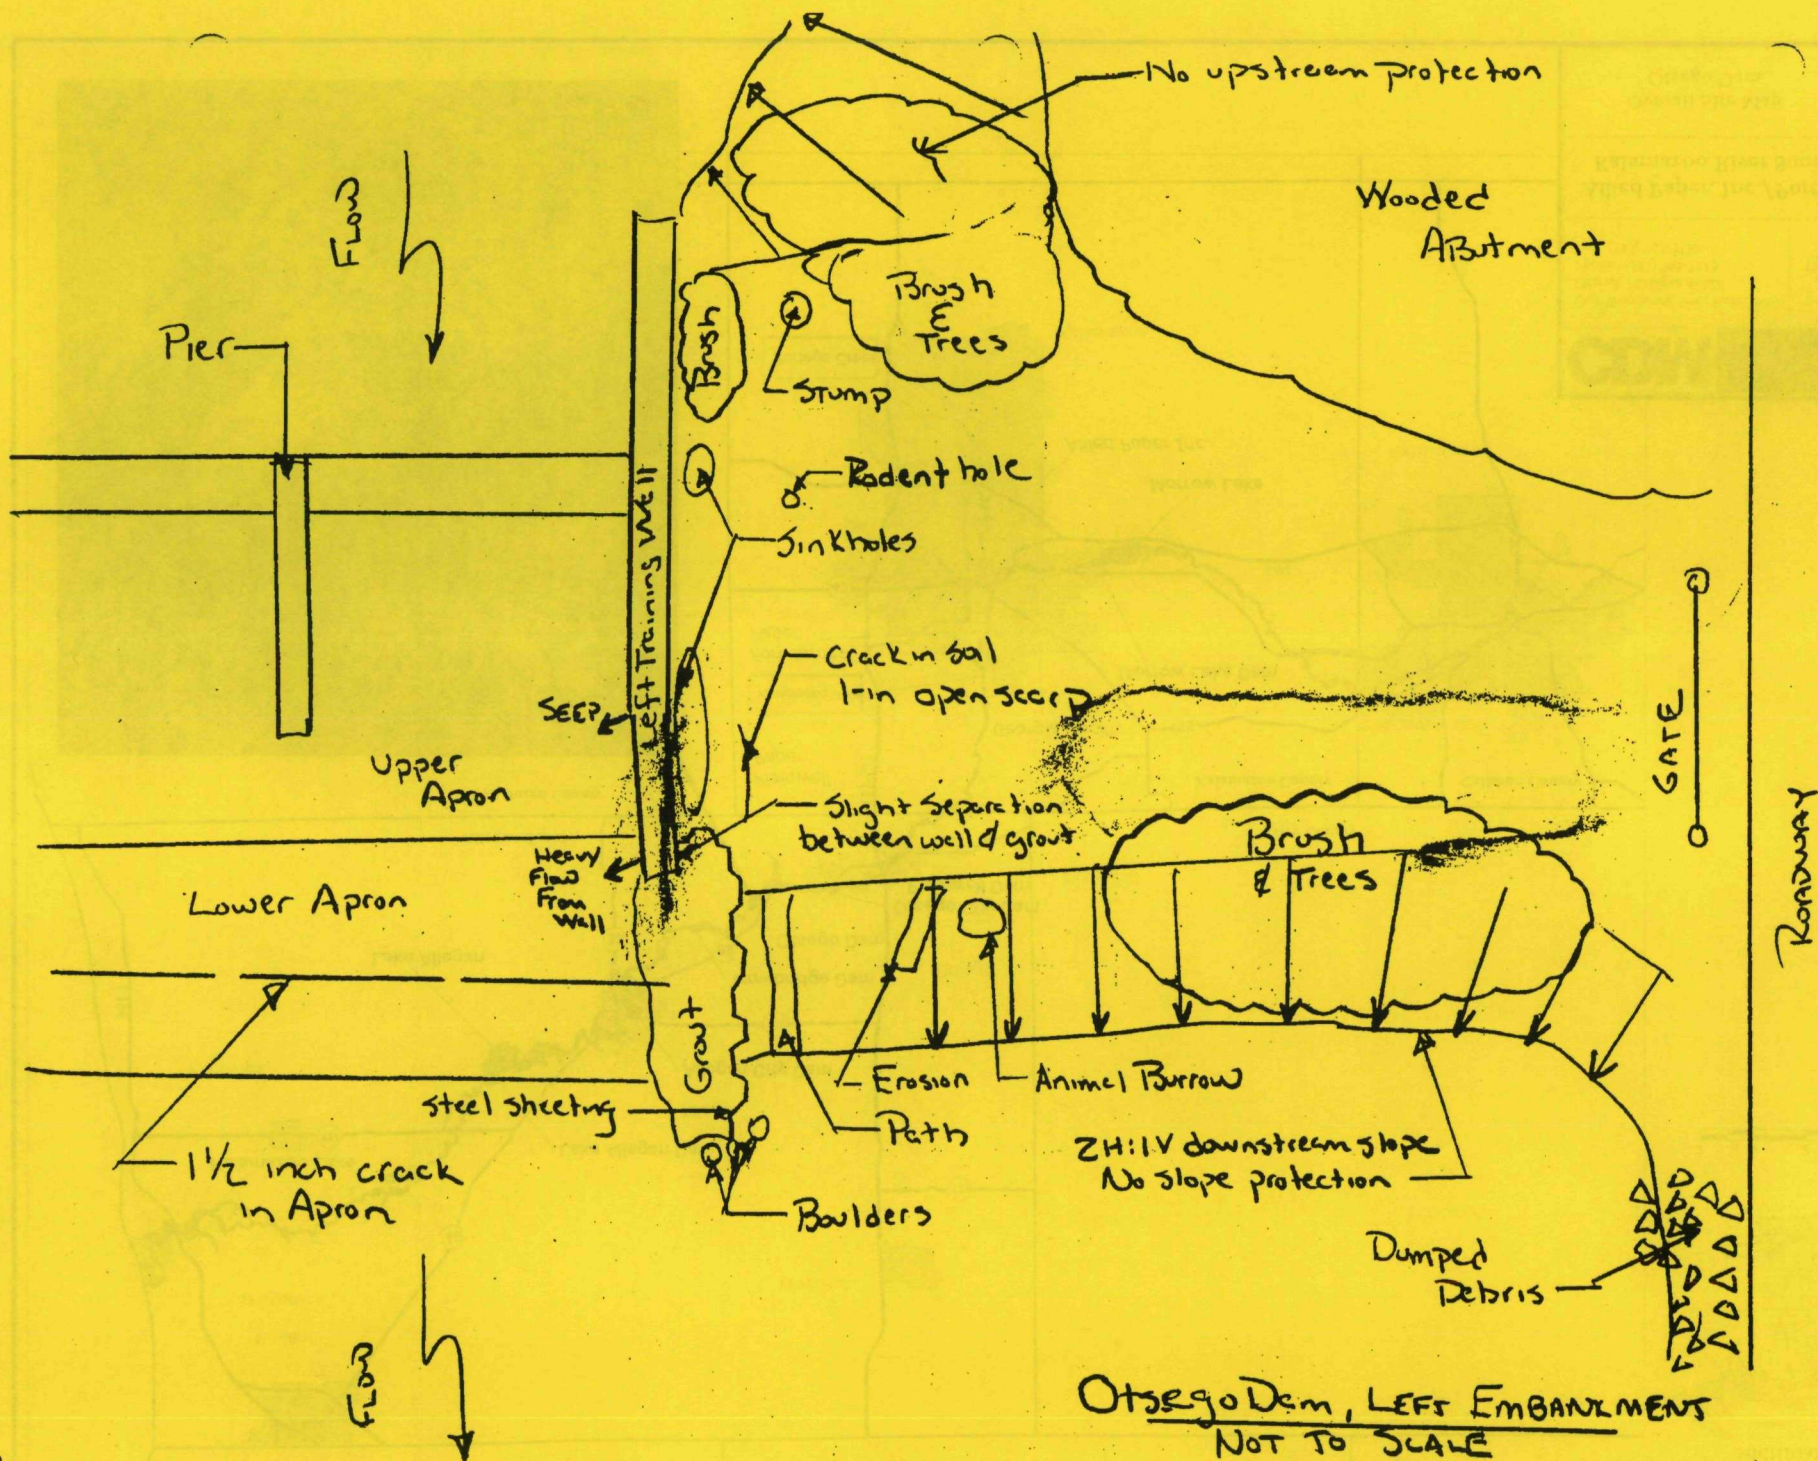 No upstream protection
Wooded
ABUTMENT
FLOW
Brush
&
Trees
Brush
Pier
Stump
Rodent hole
Left Training Wall
Sinkholes
Crack in soil
1-in open scarp
SEEP
GATE
Upper
Apron
Slight Separation
between wall & grout
Brush
& Trees
ROADWAY
Heavy
Flow
From
Wall
Lower Apron
Grout
Erosion
Animal Burrow
steel sheeting
Path
2H:1V downstream slope
No slope protection
1 1/2 inch crack
in Apron
Boulders
Dumped
Debris
FLOW
Otsego Dam, LEFT EMBANKMENT
NOT TO SCALE